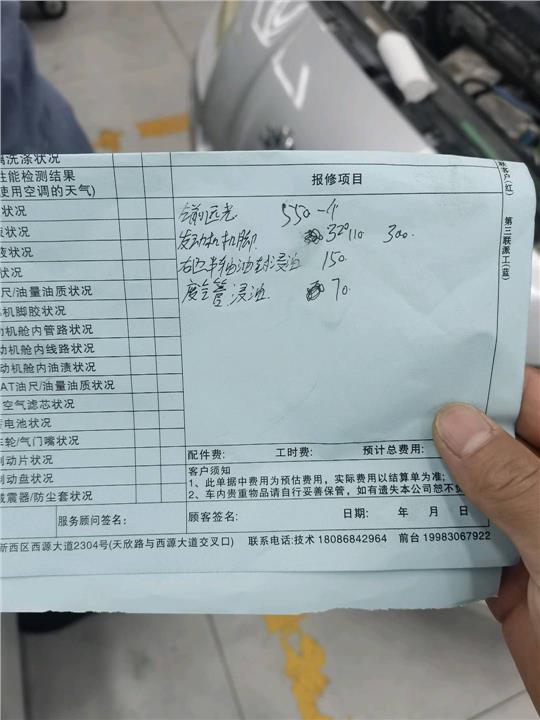 洗涤状况
性能检测结果
使用空调的天气)
报修项目
状况
状况
液状况
状况
尺/油量油质状况
机脚胶状况
动机舱内管路状况
动机舱内线路状况
动机舱内油渍状况
AT油尺/油量油质状况
空气滤芯状况
电池状况
车轮/气门嘴状况
制动片状况
制动盘状况
减震器/防尘套状况
远光 550一个
发动机机脚 300.
右边半轴油封浸油 150.
废气管浸油 70.
配件费: 工时费: 预计总费用:
客户须知
1、此单据中费用为预估费用,实际费用以结算单为准;
2、车内贵重物品请自行妥善保管,如有遗失本公司恕不负
服务顾问签名:
顾客签名: 日期: 年 月 日
新西区西源大道2304号(天欣路与西源大道交叉口) 联系电话:技术 18086842964 前台 19983067922
联客户(红)
第三联派工(蓝)